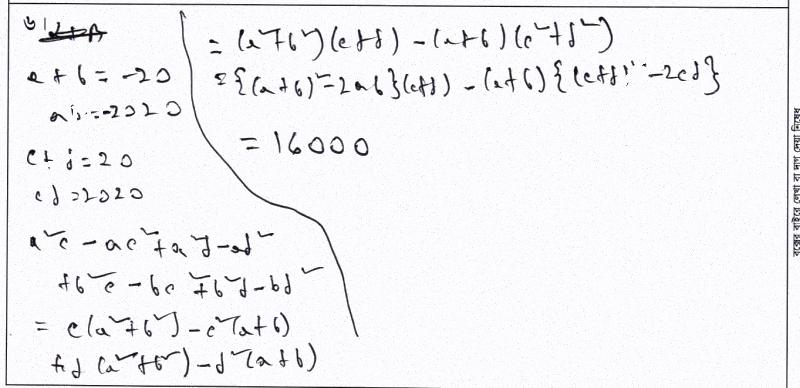 a + b = -20
ab = -2020
c + d = 20
cd = 2020
a²c - ac² + a²d - ad²
+ b²c - bc² + b²d - bd²
= c(a² + b²) - c²(a + b)
+ d(a² + b²) - d²(a + b)
= (a² + b²)(c + d) - (a + b)(c² + d²)
= {(a + b)² - 2ab}(c + d) - (a + b){(c + d)² - 2cd}
= 16000
বক্সের বাইরে লেখা বা দাগ দেয়া নিষেধ